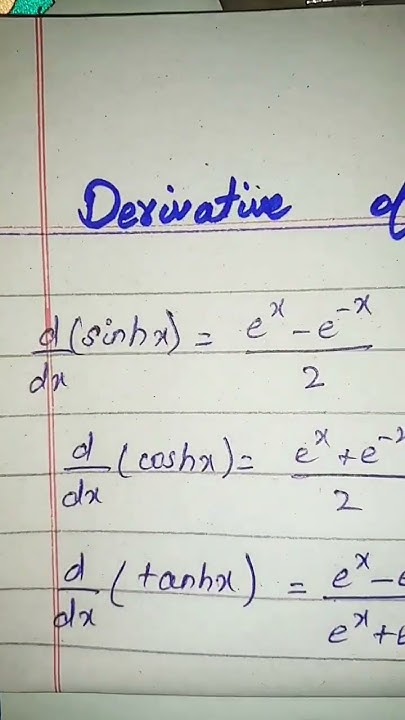 Derivative of
d/dx (sinhx) = e^x - e^-x / 2
d/dx (coshx) = e^x + e^-x / 2
d/dx (tanhx) = e^x - e / e^x + e